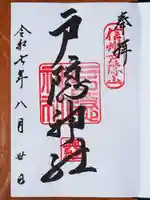 奉拝
信州戸隠山
戸隠神社
令和七年八月廿日